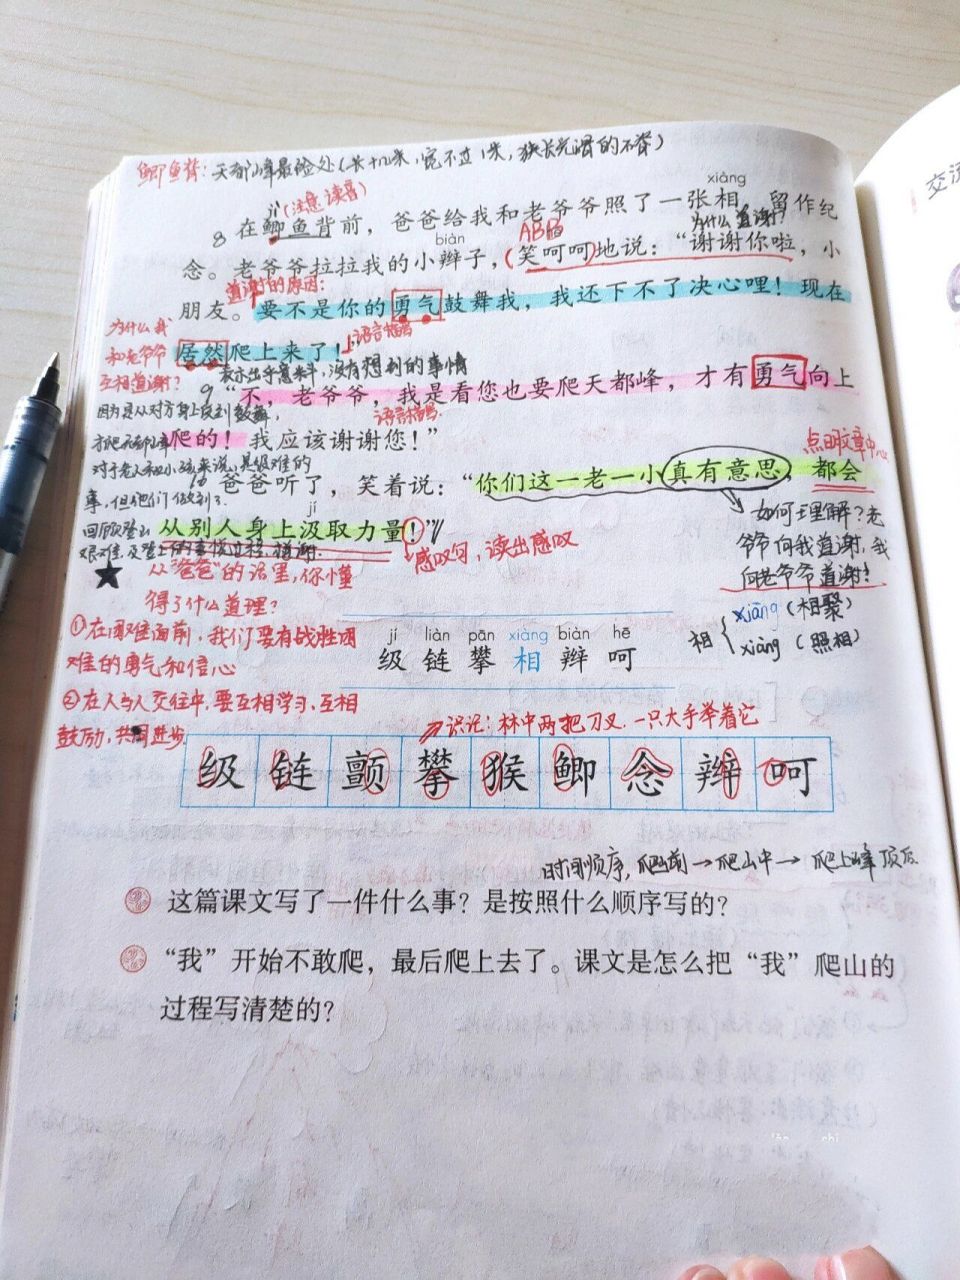 鲫鱼背：天都峰最险处（长十几米，宽不过1米，狭长光滑的石脊）
交流
jǐ（注意读音） xiàng
8 在鲫鱼背前，爸爸给我和老爷爷照了一张相，留作纪
biàn ABB 为什么道谢？
念。老爷爷拉拉我的小辫子，（笑呵呵）地说：“谢谢你啦，小
道谢的原因：
朋友。要不是你的勇气鼓舞我，我还下不了决心哩！现在
居然爬上来了！”语言描写
表示出乎意料，没有想到的事情
为什么我
和老爷爷
互相道谢？
9 “不，老爷爷，我是看您也要爬天都峰，才有勇气向上
爬的！我应该谢谢您！” 语言描写
因为是从对方身上受到鼓舞，
才爬天都峰
点明文章中心
10 爸爸听了，笑着说：“你们这一老一小真有意思，都会
jí
从别人身上汲取力量！”
对于老人和小孩来说，是很难的
事，但他们做到了
回顾登山
感叹句，读出感叹
如何理解？老
爷爷向我道谢，我
向老爷爷道谢！
★从“爸爸”的话里，你懂
得了什么道理？
①在困难面前，我们要有战胜困
难的勇气和信心
②在人与人交往中，要互相学习、互相
鼓励，共同进步。
相 xiāng（相聚）
xiàng（照相）
jí liàn pān xiàng biàn hē
级 链 攀 相 辫 呵
识记：林中两把刀叉，一只大手举着它
级 链 颤 攀 猴 鲫 念 辫 呵
时间顺序，爬山前→爬山中→爬上峰顶后
这篇课文写了一件什么事？是按照什么顺序写的？
“我”开始不敢爬，最后爬上去了。课文是怎么把“我”爬山的
过程写清楚的？